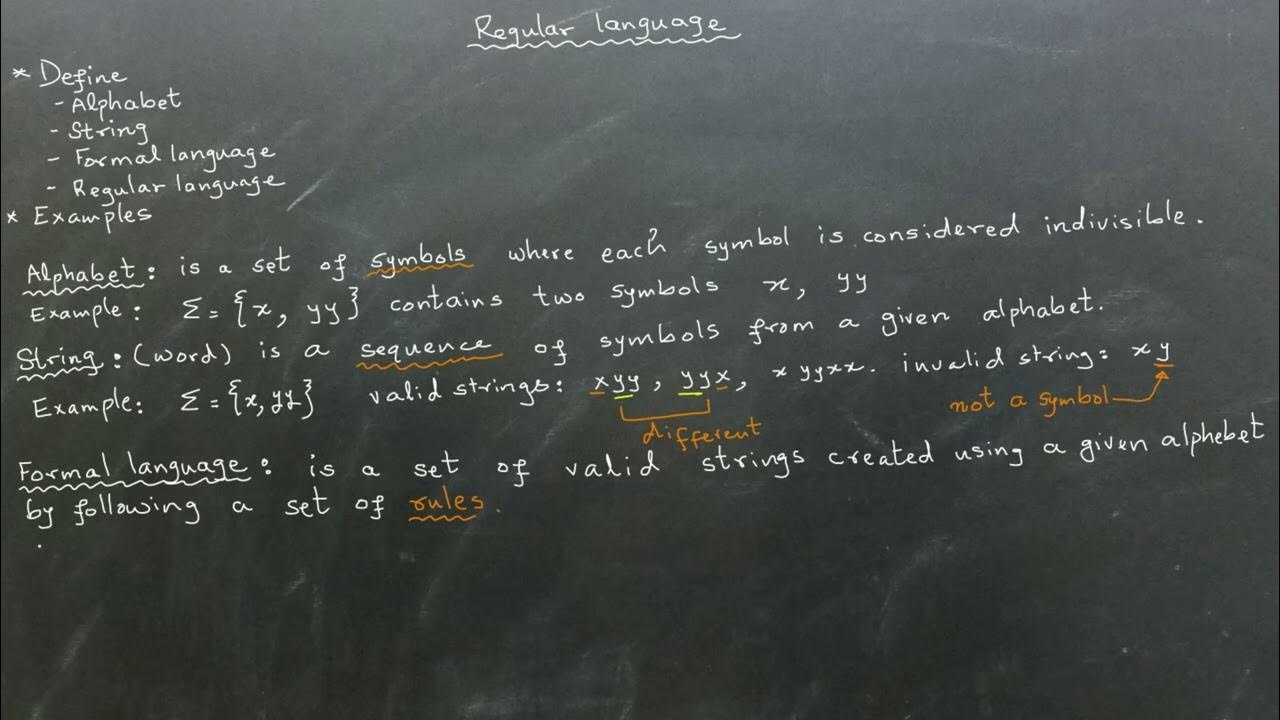 Regular language
* Define
- Alphabet
- String
- Formal language
- Regular language
* Examples
Alphabet: is a set of symbols where each symbol is considered indivisible.
Example: Σ = {x, yy} contains two symbols x, yy
String: (word) is a sequence of symbols from a given alphabet.
Example: Σ = {x, yy} valid strings: xyy, yyx, xyyxx. invalid string: xy
different
not a symbol
Formal language: is a set of valid strings created using a given alphebet
by following a set of rules.